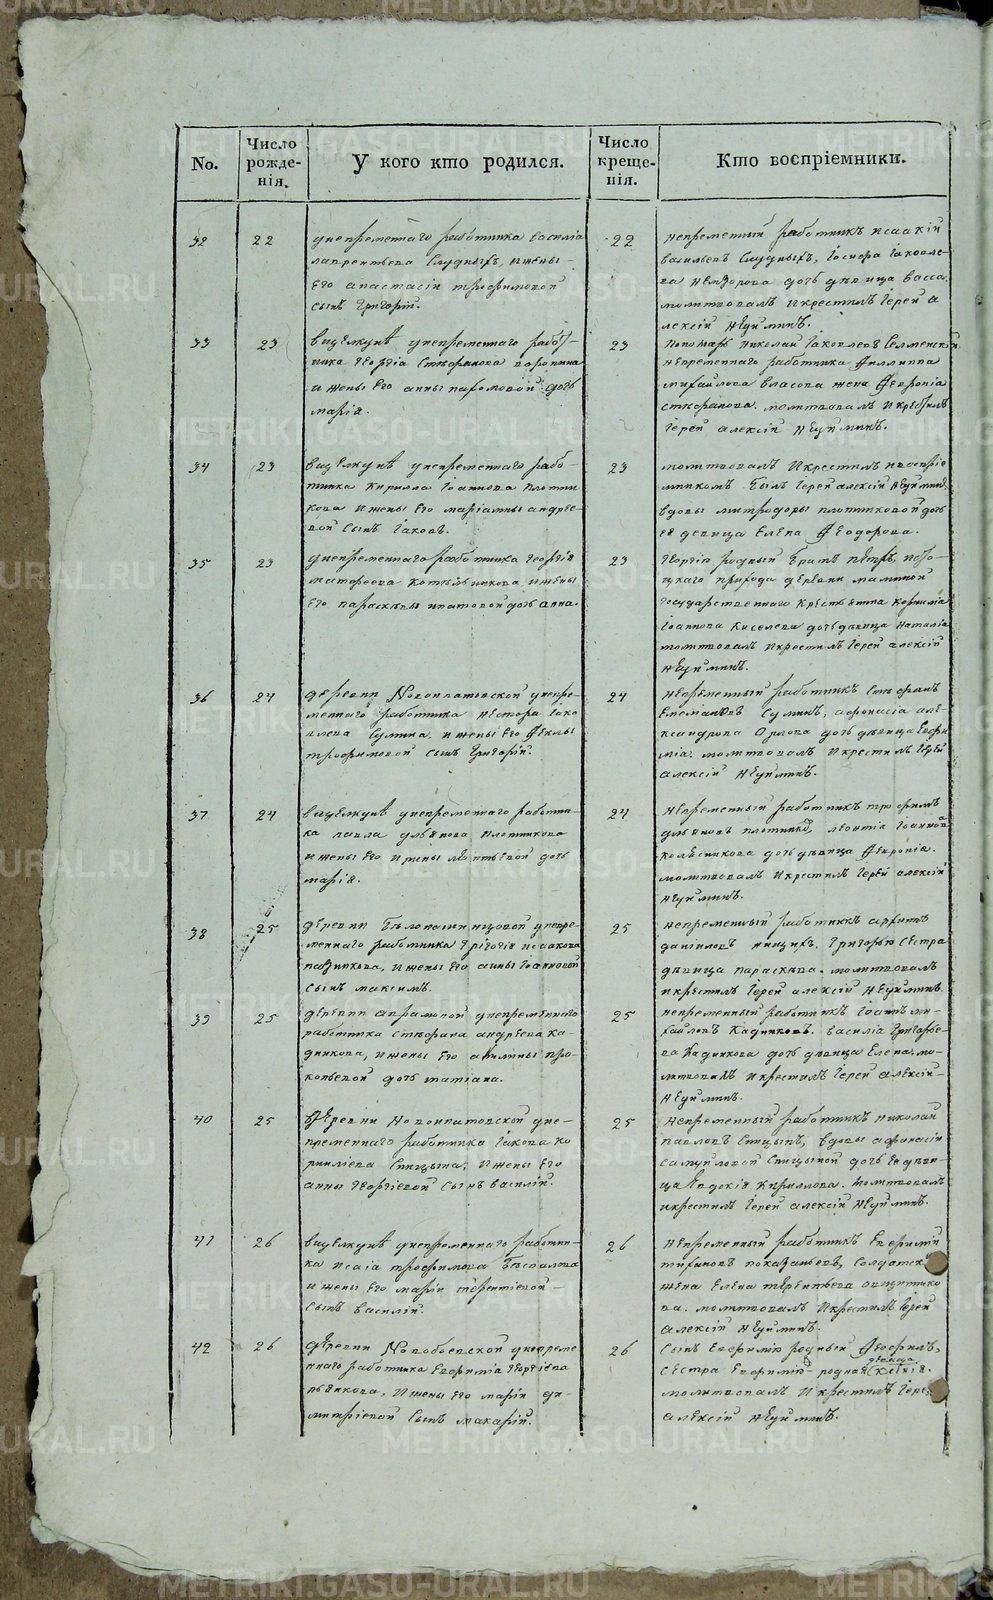 No.
Число рожде-нія.
У кого кто родился.
Число креще-нія.
Кто воспріемники.
32
22
унепременнаго работника василіа
лаврентьева Слудныхъ, ижены
его анастасіи трофимовой
сынъ Григорій.
22
непременный работникъ исаакій
васильевъ Слудныхъ, Іосифа Іаковле-
ва дочь дѣвица васса.
молитвовалъ икрестилъ Іерей а
лексій Неуйминъ.
33
23
унепременнаго работ-
ника Георгія Стефанова воронина
ижены его анны пафомовой дочь
марія.
23
Пономарь николай Іаковлевъ Селменскій
непременнаго работника Филиппа
михайлова власова жена Феврониа
стефанова. молитвовалъ икрестилъ
Іерей алексій Неуйминъ.
34
23
унепременнаго рабо-
тника Кирилла Іоаннова плотни
кова ижены его маріамны андрее-
вой Сынъ Іаковъ.
23
молитвовалъ Икрестилъ ивоспріе
мникомъ былъ Іерей алексій Неуйминъ
вдовы митродоры плотниковой дочь
ея девица Елена Феодорова.
35
23
унепременнаго работника георгія
матфеева Котельникова, ижены
его параскевы ипатовой дочь анна.
23
Георгію родный братъ петръ,
прихода деревни маминой
государственнаго Крестьянина Корнилія
Іоаннова Киселева дочь дѣвица наталіа
молитвовалъ икрестилъ Іерей алексій
Неуйминъ.
36
24
деревни Новоипатовской унепре-
меннаго работника нестора Іако
влева Сулина, ижены его Феклы
трофимовой сынъ Григорій.
24
непременный работникъ Стефанъ
Сулинъ, афонасіа але-
ксандрова Орлова дочь дѣвица Евфи
міа. молитвовалъ икрестилъ Іерей
алексій Неуйминъ.
37
24
унепременнаго работни-
ка павла ульянова плотникова
ижены его дочь
марія.
24
непременный работникъ трофимъ
ульяновъ плотниковъ, леонтіа Іоаннова
колесникова дочь дѣвица Феврониа.
молитвовалъ икрестилъ Іерей алексій
Неуйминъ.
38
25
деревни унепре-
меннаго работника Григоріа исаакова
ижены его анны Іоанновой
сынъ максимъ.
25
непременный работникъ
даніиловъ нищихъ, Григорью сестра
дѣвица параскева. молитвовалъ
икрестилъ Іерей алексій Неуйминъ.
39
25
деревни абрамовой унепременнаго
работника стефана андреева Ка
дникова, ижены его акилины про-
копьевой дочь татіана.
25
непременный работникъ Іоаннъ ми-
хайловъ Кадниковъ. василіа Григорье-
ва Кадникова дочь дѣвица Елена, мо-
литвовалъ икрестилъ Іерей алексій
Неуйминъ.
40
25
деревни Новоипатовской уне-
пременнаго работника Іакова ко
рниліева Спицына, ижены его
анны Георгіевой сынъ василій.
25
непременный работникъ николай
павловъ Спицынъ, вдовы афанасіи
самуиловой Спицыной дочь ея дѣви-
ца Евдокія Кириллова. молитвовалъ
икрестилъ Іерей алексій Неуйминъ.
41
26
унепременнаго работни-
ка исаіа трофимова Беспалова
ижены его маріи терентіевой
сынъ василій.
26
непременный работникъ Евфимій
тихановъ солдатска
жена Елена терентьева
молитвовалъ икрестилъ Іерей
алексій Неуйминъ.
42
26
деревни Новобоевской унепреме
ннаго работника Евфиміа Георгіева
пьянкова, ижены его маріи ди-
митріевой сынъ макарій.
26
Сынъ Евфимію родный Феофилъ,
сестра Евфимію родная девица Ксенія.
молитвовалъ икрестилъ Іерей
алексій Неуйминъ.
METRIKI.GASO-URAL.RU